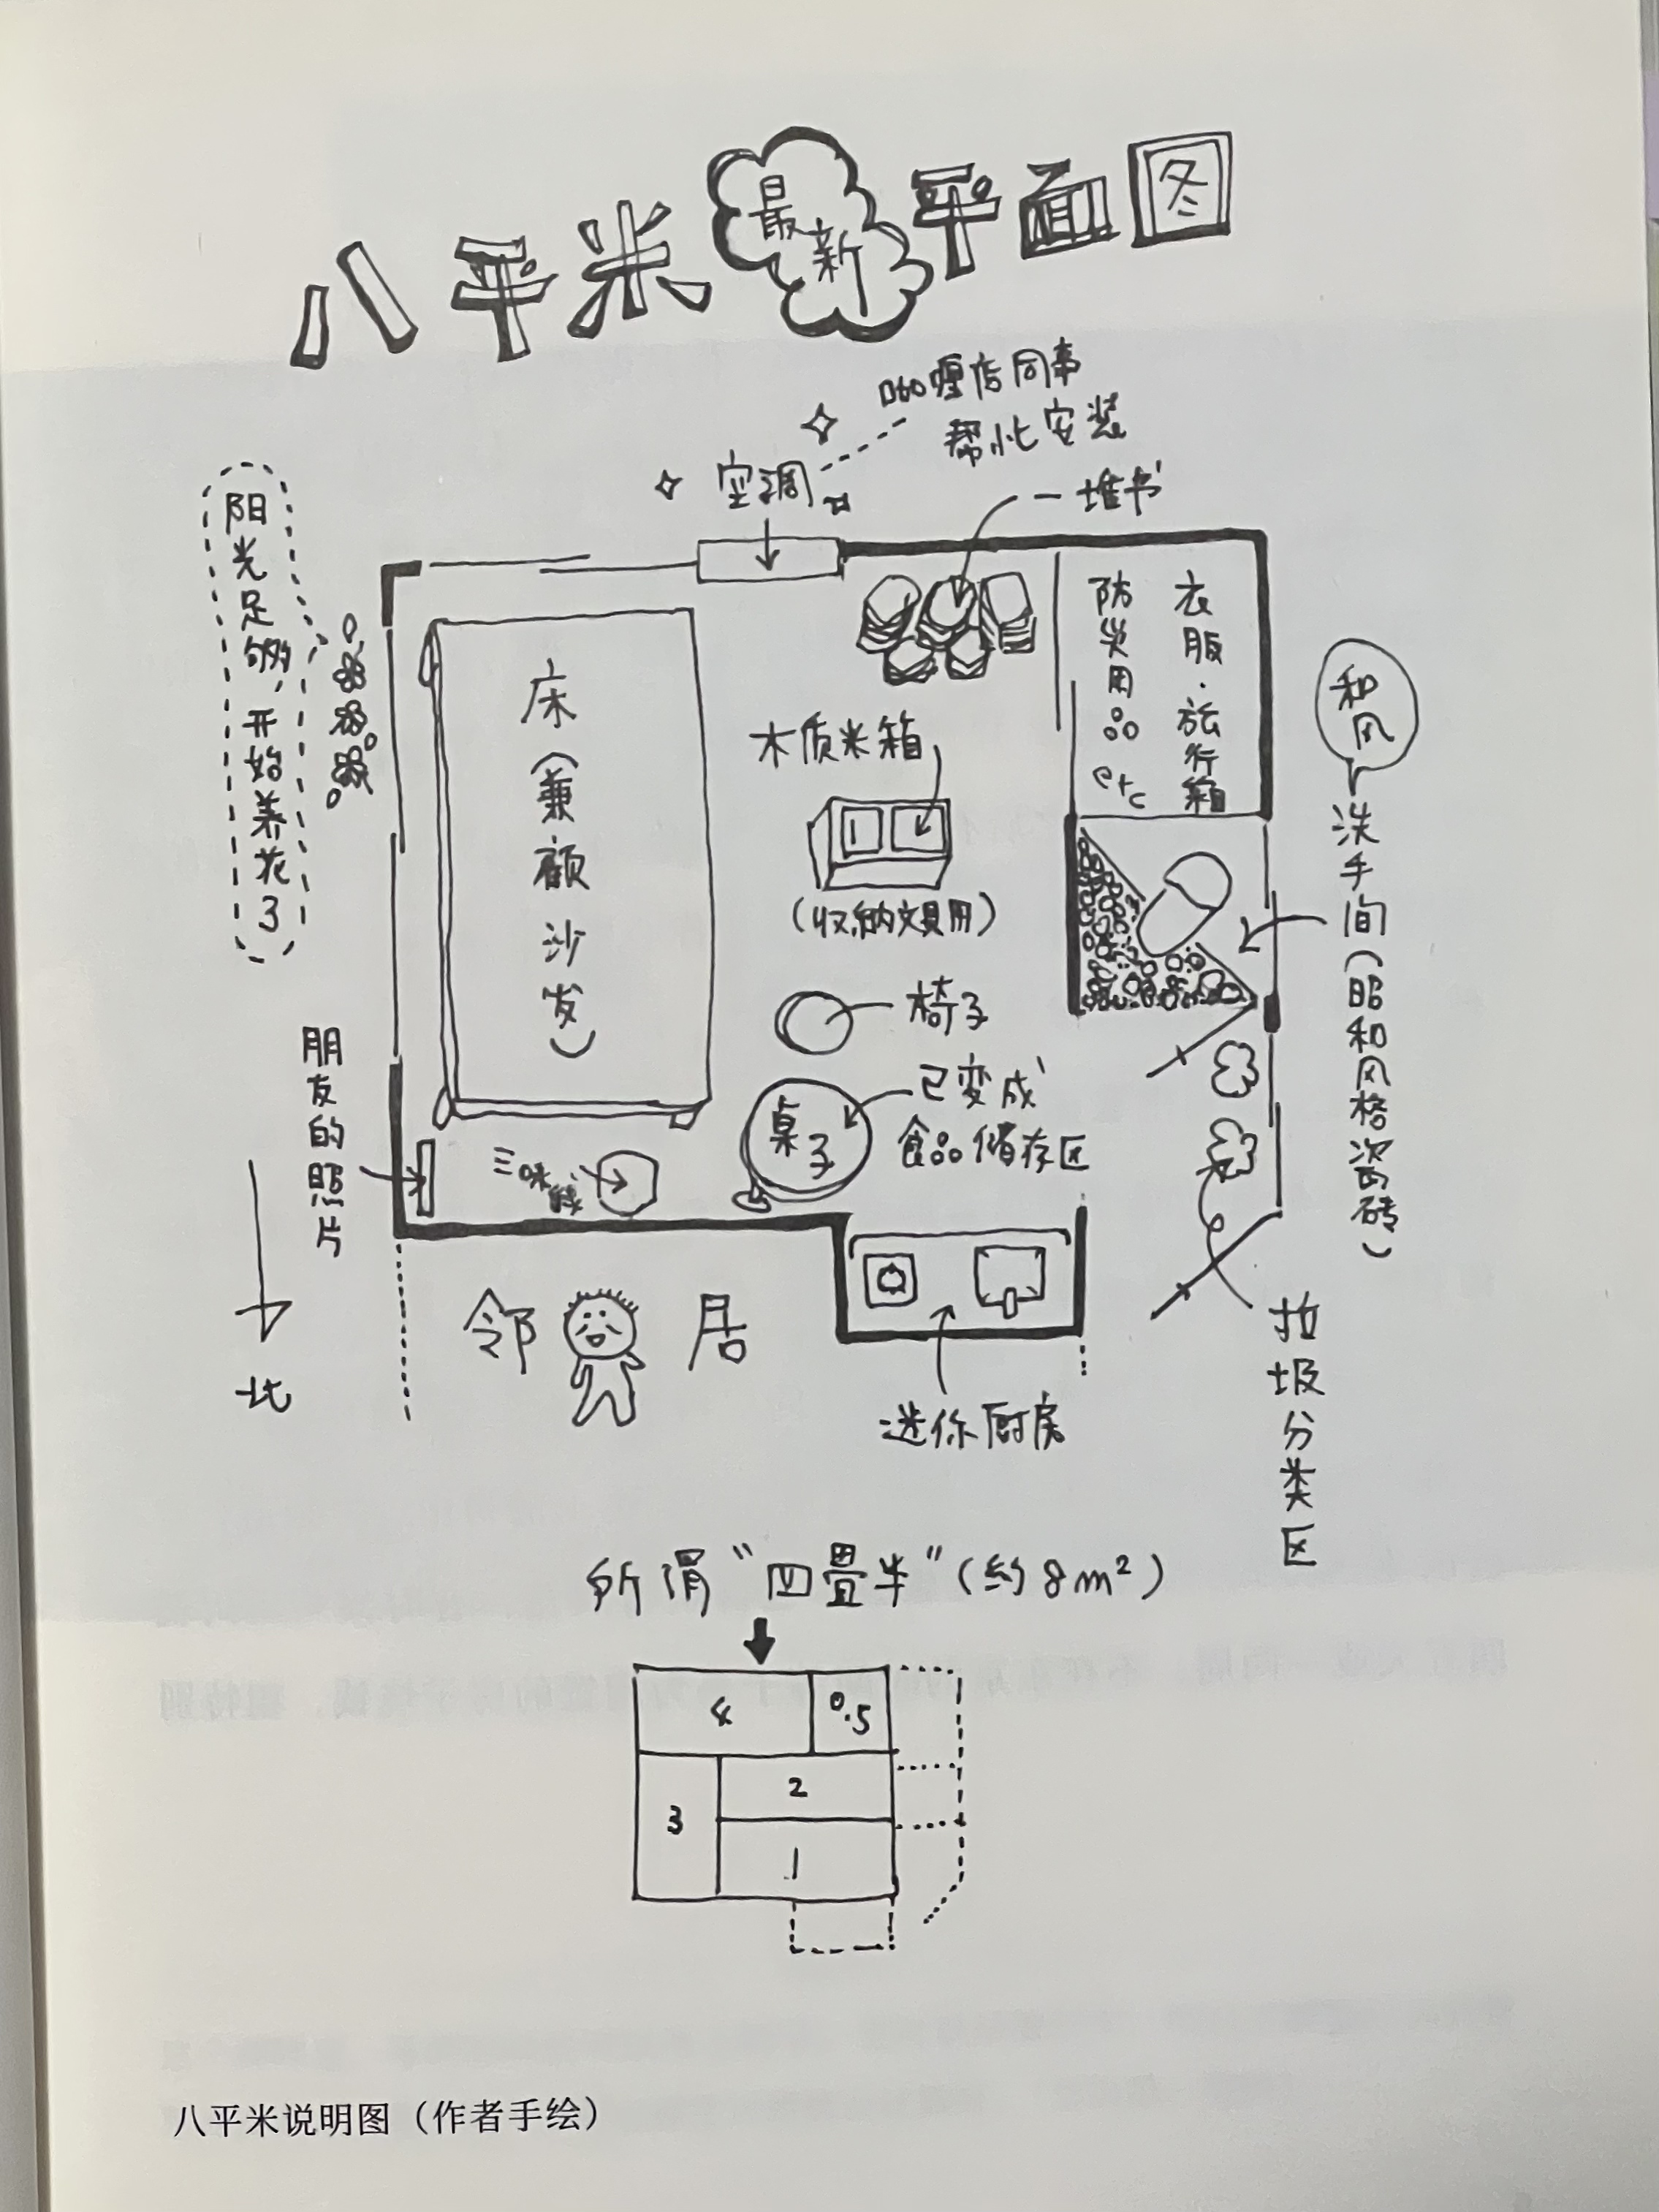 八平米最新平面图
咖喱店同事
帮忙安装
空调
一堆书
阳光足够，开始养花了
床（兼顾沙发）
木质米箱
（收纳文具用）
防灾用品 etc
衣服·旅行箱
和风
洗手间（昭和风格瓷砖）
椅子
桌子
已变成
食品储存区
朋友的照片
三味线
北
邻居
迷你厨房
垃圾分类区
所谓“四畳半”（约8m²）
4
0.5
3
2
1
八平米说明图（作者手绘）